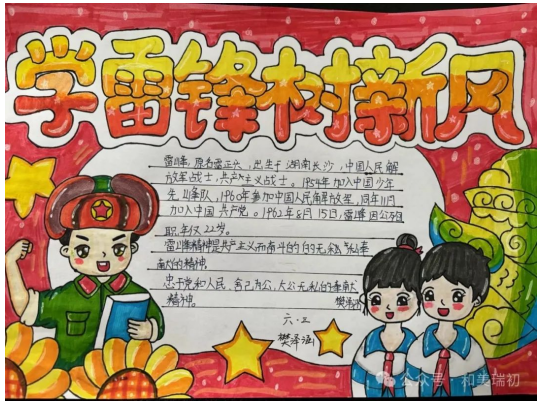 学雷锋树新风
雷锋,原名雷正兴,出生于湖南长沙,中国人民解
放军战士,共产主义战士。1954年加入中国少年
先锋队,1960年参加中国人民解放军,同年11月
加入中国共产党。1962年8月15日,雷锋因公殉
职,年仅22岁。
雷锋精神是共产主义而奋斗的无私奉
献的精神。
忠于党和人民,舍己为公,大公无私的奉献
精神。 樊泽涵
六.三
樊泽涵
公众号·和美瑞初